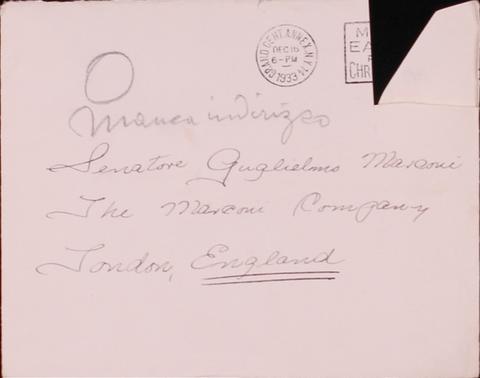 GRAND CENT. ANNEX. N.Y.
DEC 16
6-PM
1933
M
EA
CHR
O
Manca indirizzo
Senatore Guglielmo Marconi
The Marconi Company
London, England